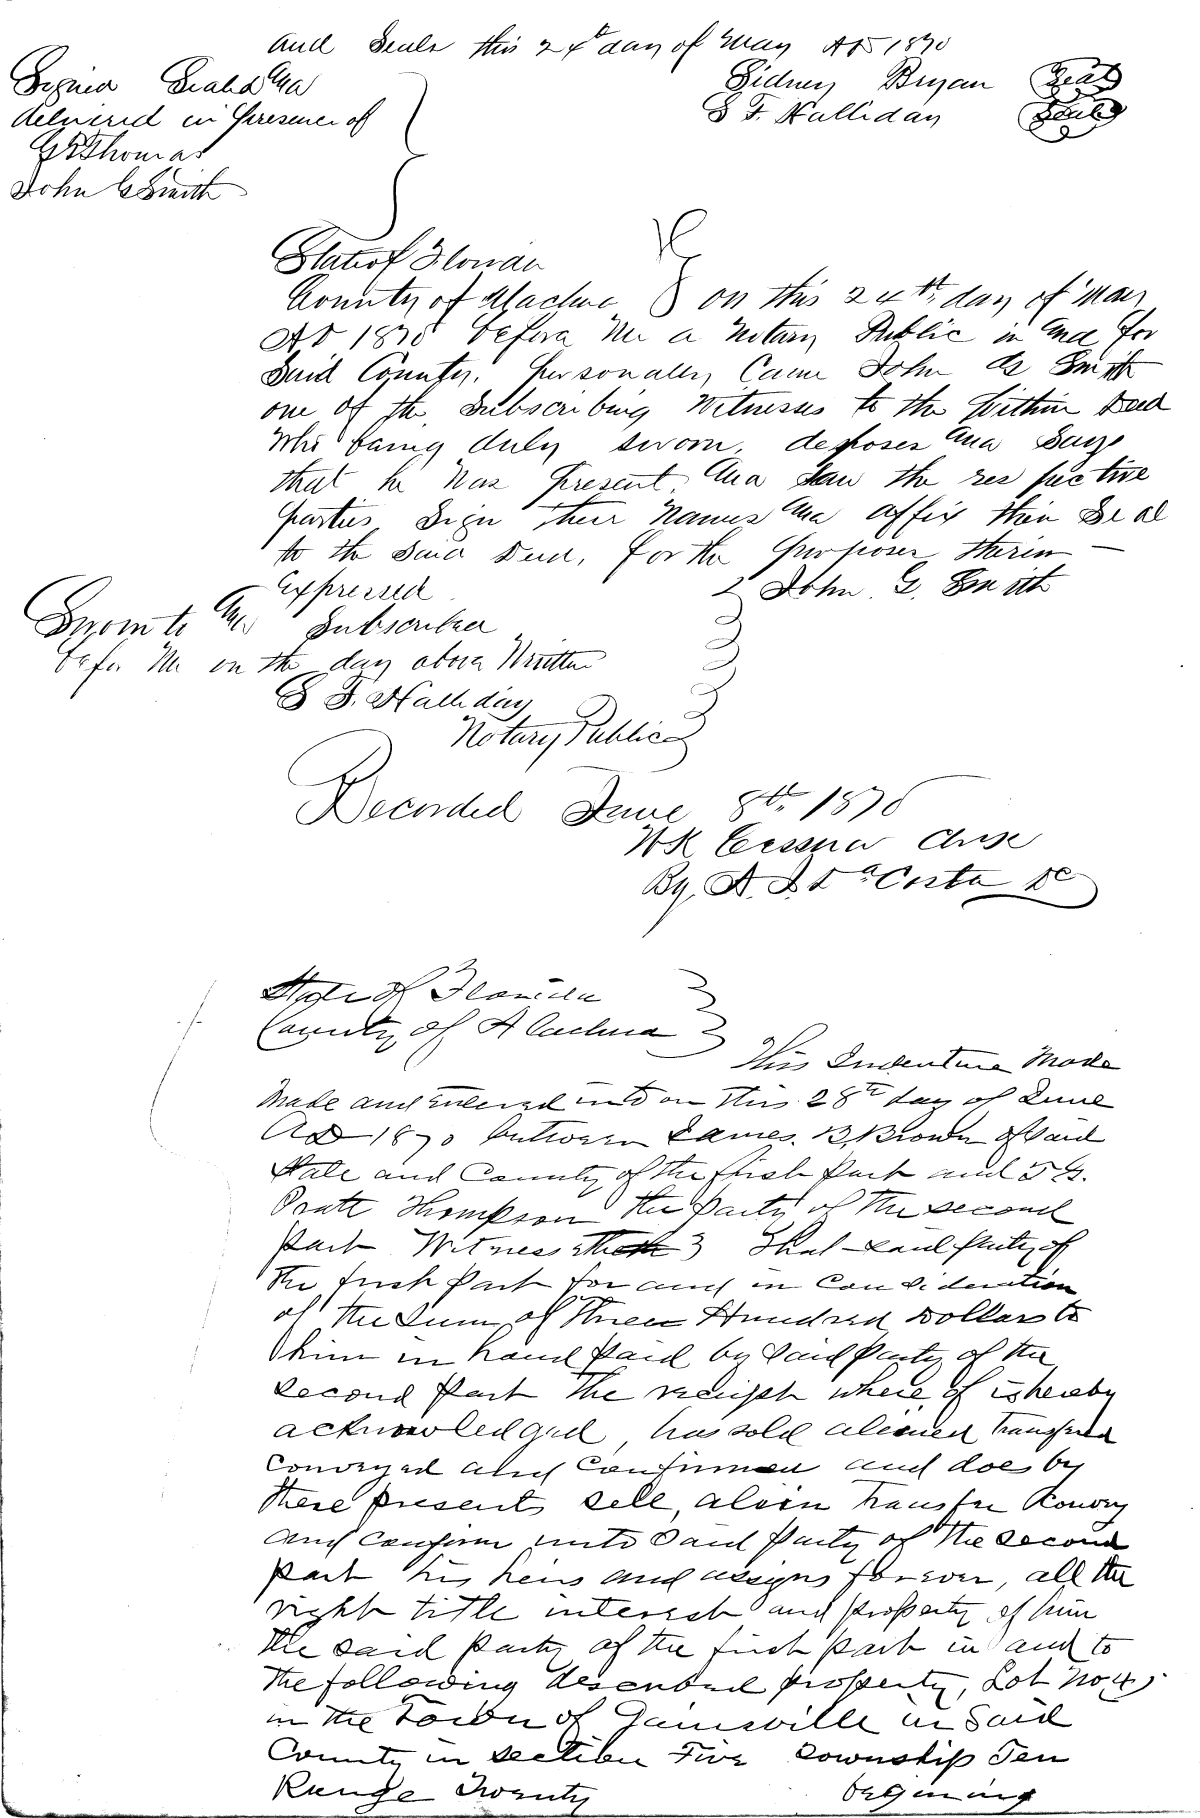 and Seals this 24th day of May AD 1870
Signed Seald and
delivered in presence of
G E Thomas
John G Smith
Sidney Bryan Seal
S F. Halliday Seal
State of Florida
County of Alachua } on this 24th day of May
AD 1870 before me a Notary Public in and for
Said County. personally Came John G Smith
one of the Subscribing Witnesses to the Within Deed
Who being duly sworn, deposes and Says
that he was present and saw the res pective
parties Sign their Names and affix their Seal
to the said Deed, for the purposes therin
Expressed
John. G. Smith
Sworn to and Subscribed
befor Me on the day above Written
S F. Halliday
Notary Public
Recorded June 8th 1870
WK Cessna Clerk
By A. J. Da Costa DC
State of Florida
County of Alachua
This Indenture Made
Made and entered into on this 28th day of June
AD 1870 between James. B. Brown of said
State and County of the first part and
Pratt Thompson the party of the second
part Witnesseth That said party of
the first part for and in Consideration
of the sum of three Hundred Dollars to
him in hand paid by said party of the
second part the receipt where of is hereby
acknowledged, has sold aliened Transferd
conveyed and confirmed and does by
these presents sell, alien Transfer Convey
and confirm unto said party of the second
part his heirs and assigns forever, all the
right title interest and property of him
the said party of the first part in and to
the following described property, Lot No 4
in the Town of Gainsville in Said
County in section Five Township Ten
Range Twenty begining